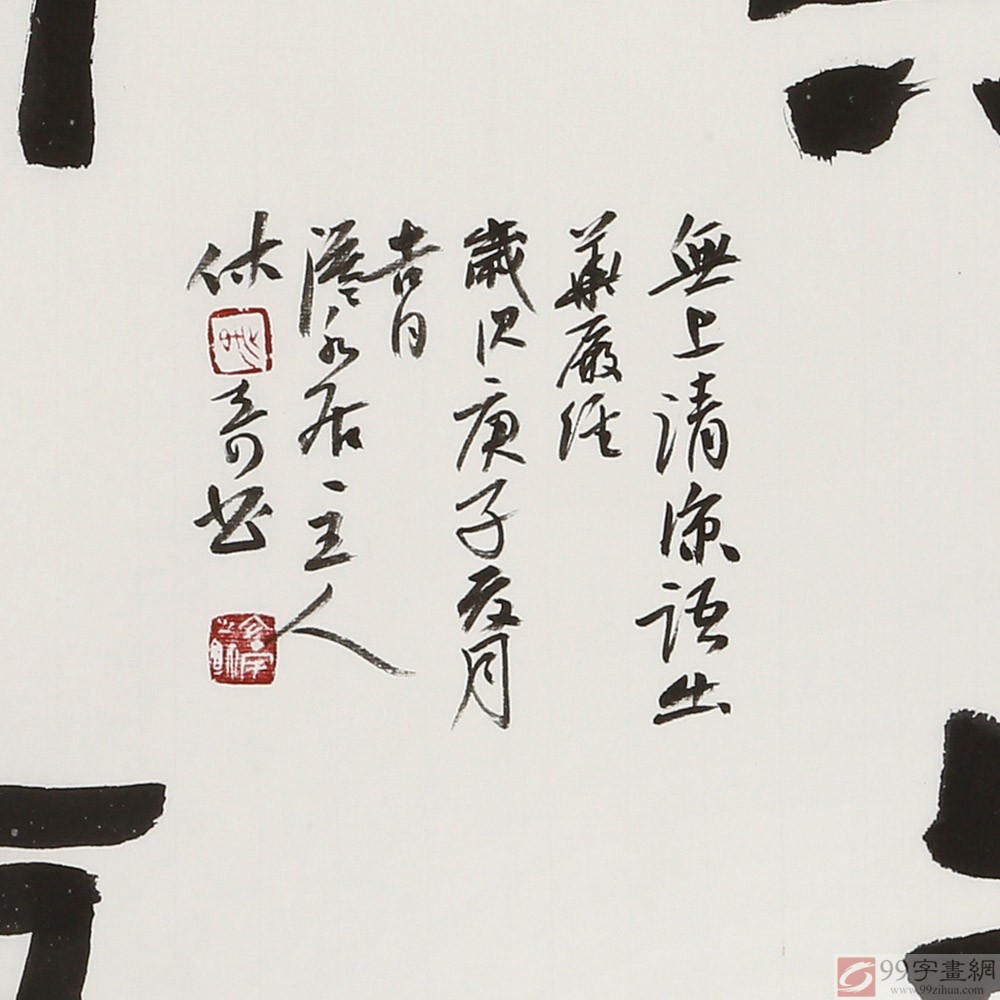 無上清凉語出
華嚴經
歲次庚子夏月
吉日
居主人
休
書
99字畫網
www.99zihua.com